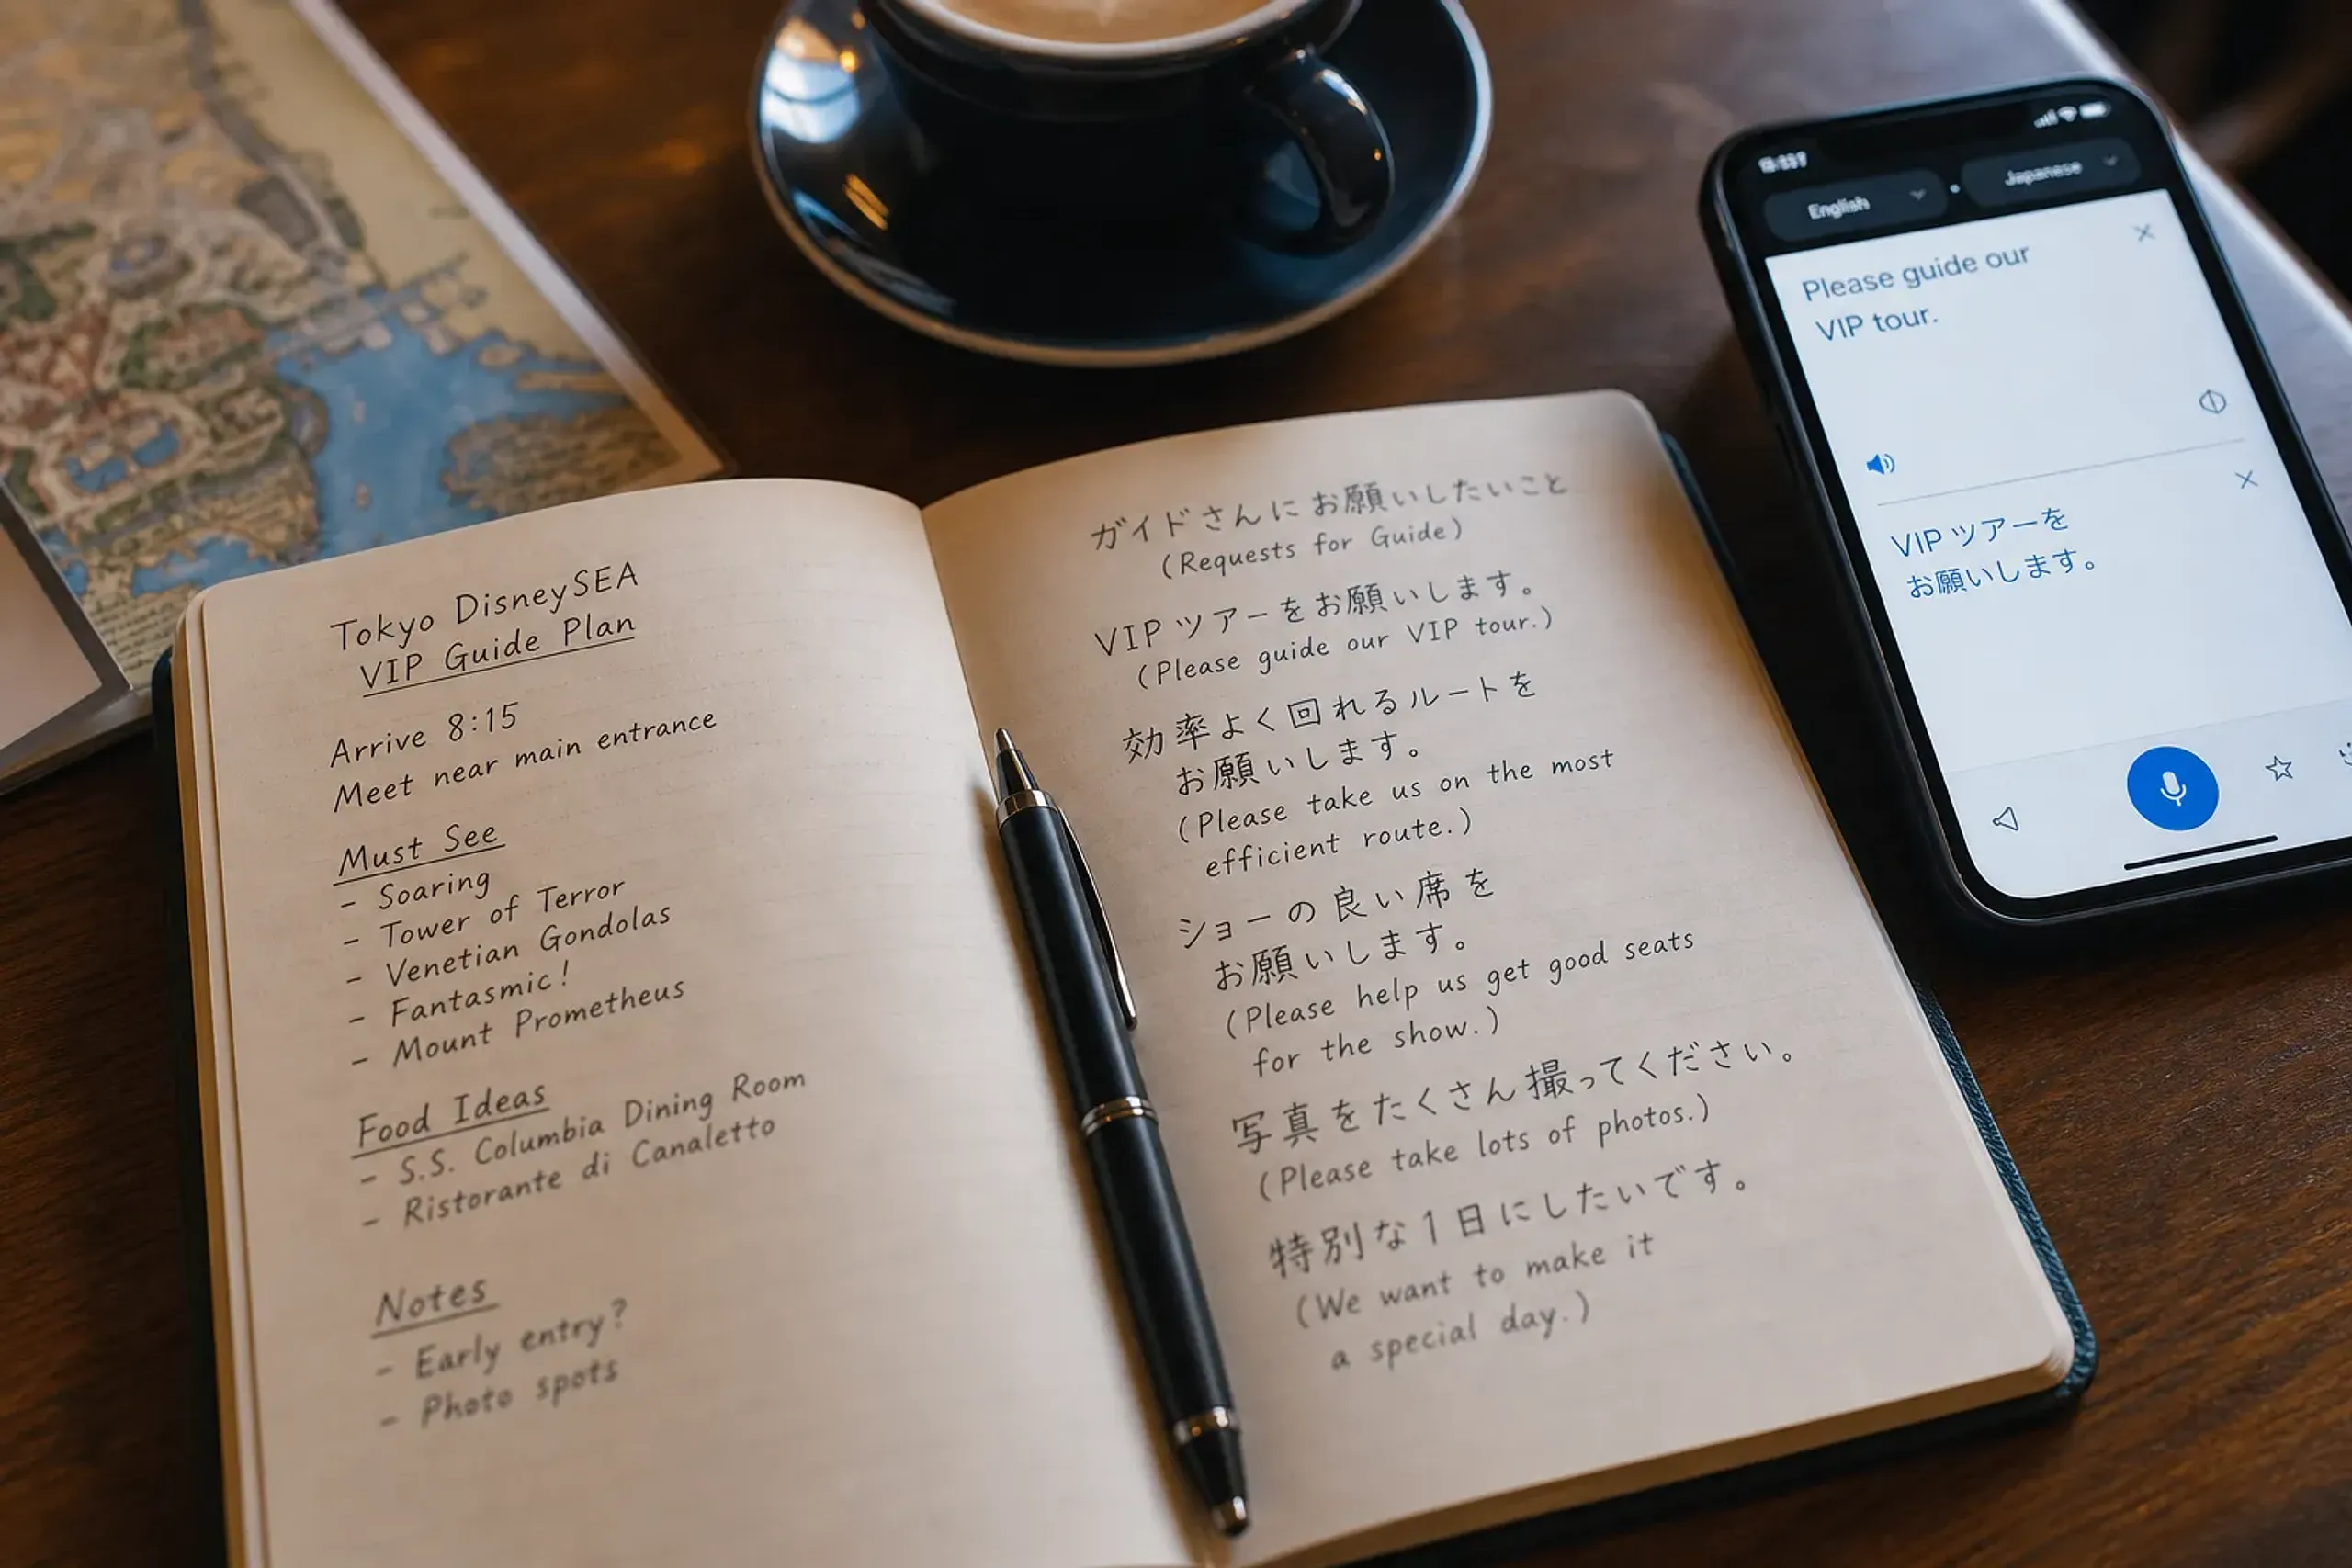 Tokyo DisneySEA
VIP Guide Plan
Arrive 8:15
Meet near main entrance
Must See
- Soaring
- Tower of Terror
- Venetian Gondolas
- Fantasmic!
- Mount Prometheus
Food Ideas
- S.S. Columbia Dining Room
- Ristorante di Canaletto
Notes
- Early entry?
- Photo spots
ガイドさんにお願いしたいこと
(Requests for Guide)
VIPツアーをお願いします。
(Please guide our VIP tour.)
効率よく回れるルートを
お願いします。
(Please take us on the most
efficient route.)
ショーの良い席を
お願いします。
(Please help us get good seats
for the show.)
写真をたくさん撮ってください。
(Please take lots of photos.)
特別な1日にしたいです。
(We want to make it
a special day.)
English
Japanese
Please guide our
VIP tour.
VIPツアーを
お願いします。